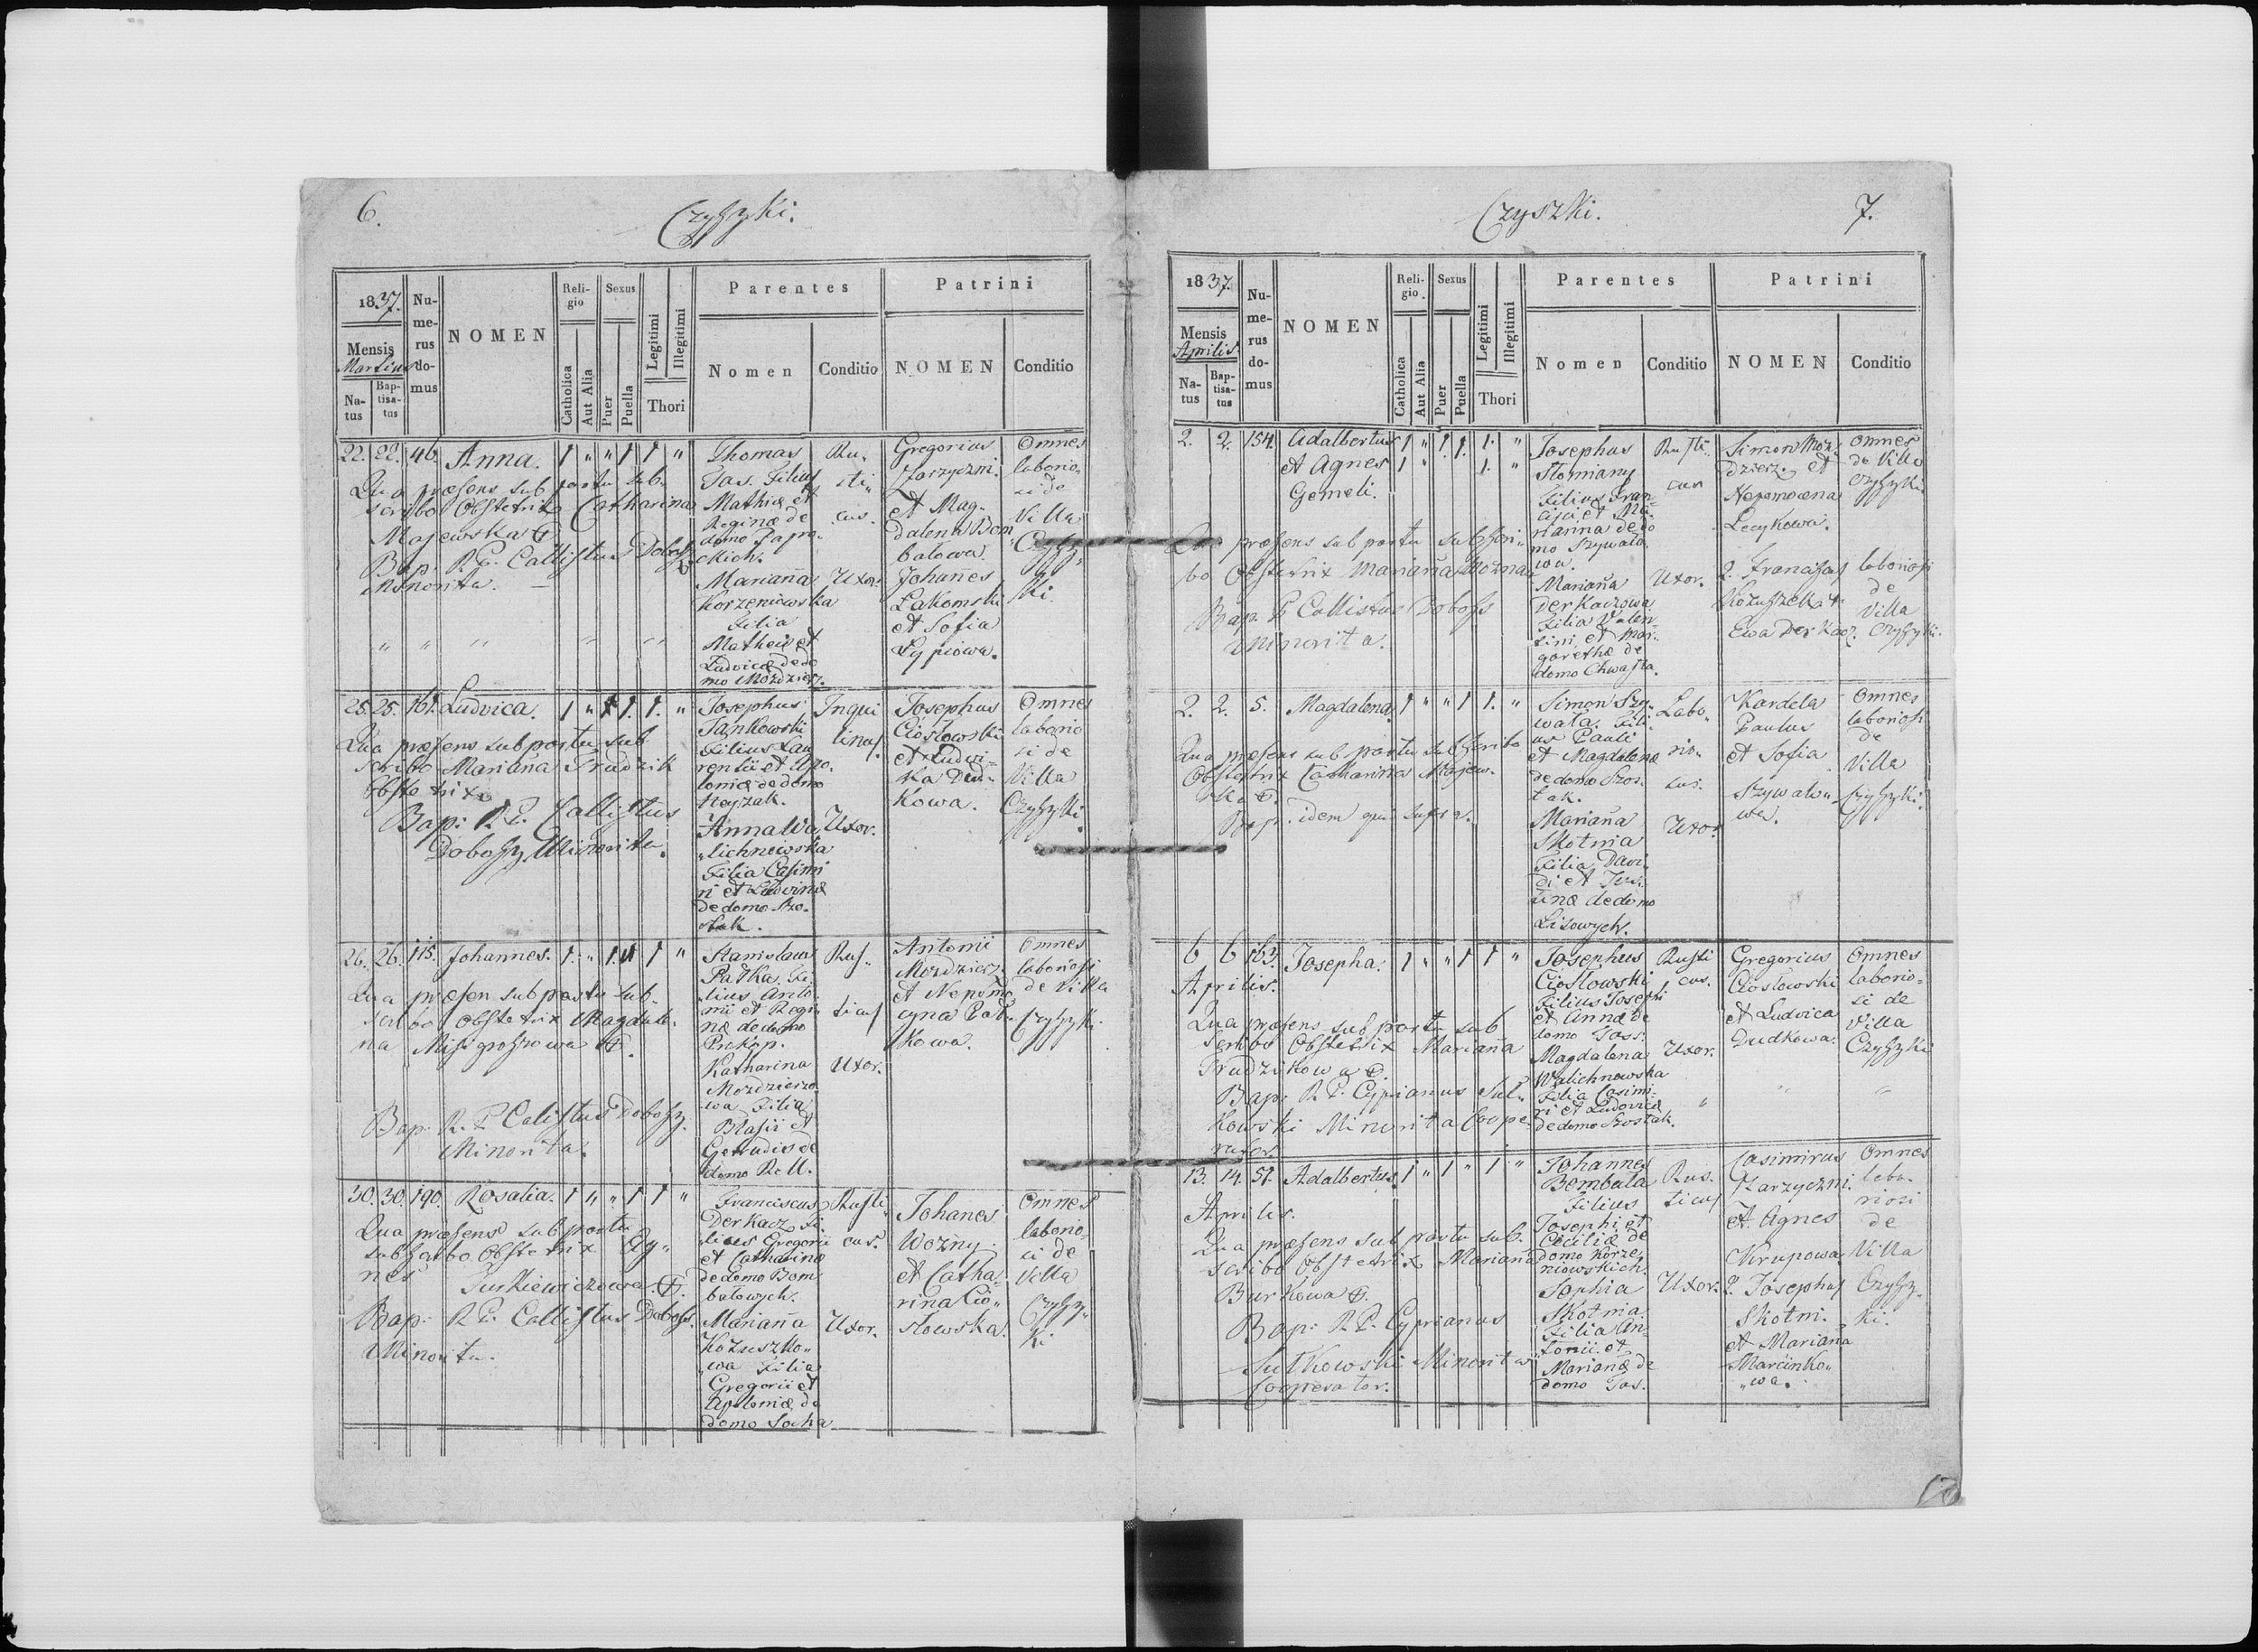 6.
Czyszki.
1837.
Mensis
Martius
Na-
tus
Bap-
tisa-
tus
Nu-
me-
rus
do-
mus
NOMEN
Reli-
gio
Catholica
Aut Alia
Sexus
Puer
Puella
Legitimi
Illegitimi
Thori
Parentes
Nomen
Conditio
Patrini
NOMEN
Conditio
22. 22. 46. Anna. 1 " " 1 1 "
Qua præsens sub partu sub-
scribo Obstetrix Catharina
Majewska
Bap: R. P. Callistus Dobosz
Minorita.
Thomas
Jas. Filius
Mathiæ et
Reginæ de
domo
Marianna
Korzeniowska
Filia
Matheiæ et
Ludvicæ de do
mo Mozdzierz.
Ru-
sti-
cus.
Uxor.
Gregorius
et Mag-
dalena Bom
batowa.
Johannes
Łakomski
et Sofia
Omnes
laborio-
si de
Villa
Czysz-
ki
25. 25. 161. Ludvica. 1 " 1. 1. "
Qua præsens sub partu sub
scribo Mariana Trudzik
Obstetrix
Bap: R. P. Callistus
Dobosz Minorita.
Josephus
Jankowski
Filius Lau
rentii et Apo-
loniæ de domo
Anna Wa
lichnowska
Filia Casimi
ri et Ludvinæ
de domo Szo-
stak.
Inqui
linus.
Uxor.
Josephus
Ciosłowski
et Ludvi-
ka Dud-
kowa.
Omnes
laborio
si de
Villa
Czyszki
26. 26. 115. Johannes. 1. " 1. 1 "
Qua præsen sub partu sub-
scribo Obstetrix Magdale-
na
Bap: R. P. Calistus Dobosz
Minorita.
Stanislaus
Patka. Fi-
lius Anto-
nii et Regi-
næ de domo
Prokop.
Katharina
Mozdzierzo-
wa Filia
Blasii et
Gertrudis de
domo
Rus-
ticus
Uxor.
Antonii
Mozdzierz
et Nepomo
cyna Pat-
kowa.
Omnes
laboriosi
de Villa
Czyszki.
30. 30. 190. Rosalia. 1 " " 1 1 "
Qua præsens sub partu
subscribo Obstetrix Ag-
nes
Juskiewiczowa.
Bap: R. P. Callistus Dobosz.
Minorita.
Franciscus
Derkacz Fi-
lius Gregorii
et Catharinæ
de domo Bom
batowych.
Marianna
Kożuszko-
wa Filia
Gregorii et
Apoloniæ de
domo Socha
Rusti-
cus.
Uxor.
Johanes
Woźny
et Catha-
rina Cio-
słowska.
Omnes
laborio-
si de
Villa
Czysz-
ki
Czyszki.
7.
1837.
Mensis
Aprilis
Na-
tus
Bap-
tisa-
tus
Nu-
me-
rus
do-
mus
NOMEN
Reli-
gio.
Catholica
Aut Alia
Sexus
Puer
Puella
Legitimi
Illegitimi
Thori
Parentes
Nomen
Conditio
Patrini
NOMEN
Conditio
2. 2. 154. Adalbertus 1 " 1. 1. 1. "
et Agnes 1 " 1. "
Gemeli.
Qua præsens sub partu subscri-
bo Obstetrix Marianna Woźna
Bap. P. Callistus Doboss
Minorita.
Josephus
Słomiany
Filius Fran-
cisci et Ma-
rianna de do
mo Szywało
wa.
Marianna
Derkaczowa
Filia Valen-
tini et Mar-
garethæ de
domo Chwasta.
Rusti-
cus
Uxor.
Simon Moz-
dzierz. et
Nepomocena
Lecykowa.
2. Francisus
Kożuszek et
Ewa Derkacz.
Omnes
de Villa
Czyszki
laboriosi
de
Villa
Czyszki.
2. 2. 5. Magdalena. 1 " " 1 1. "
Qua præsens sub partu subscribo
Obstetrix Catharina Majew-
ska
Bap. idem qui supra.
Simon Szy-
wała. Fili-
us Pauli
et Magdalenæ
de domo Szos-
tak.
Marianna
Skotnia
Filia Davi-
di et Jus-
tinæ de domo
Lisowych.
Labo-
rio-
sus.
Uxor
Kardela
Paulus
et Sofia
Szywało-
wa.
Omnes
laboriosi
de
Villa
Czyszki.
6 6 163. Josepha. 1 " " 1 1 "
Aprilis.
Qua præsens sub partu sub
scribo Obstetrix Marianna
Trudzikowa
Bap: R. P. Cyprianus Sut-
kowski Minorita Coope-
rator.
Josephus
Ciosłowski
Filius Josephi
et Annæ de
domo Jass.
Magdalena
Walichnowska
Filia Casimi-
ri et Ludovicæ
de domo Szostak.
Rusti
cus.
Uxor.
Gregorius
Ciosłowski
et Ludvica
Dudkowa.
Omnes
laborio-
si de
Villa
Czyszki
13. 14. 51. Adalbertus. 1 " 1 " 1 "
Aprilis.
Qua præsens sub partu sub-
scribo Obstetrix Marianna
Burkowa
Bap: R. P. Cyprianus
Sutkowski Minorita
Cooperator.
Johannes
Bembata
Filius
Josephi et
Ceciliæ de
domo Korze-
niowskich.
Sophia
Skotnia
Filia An-
tonii et
Marianæ de
domo Jas.
Rus-
ticus
Uxor.
Casimirus
Szarzyczni.
et Agnes
Krupowa
2. Josephus
Skotni.
et Marianna
Marcinko-
wa.
Omnes
labo-
riosi
de
Villa
Czysz-
ki.